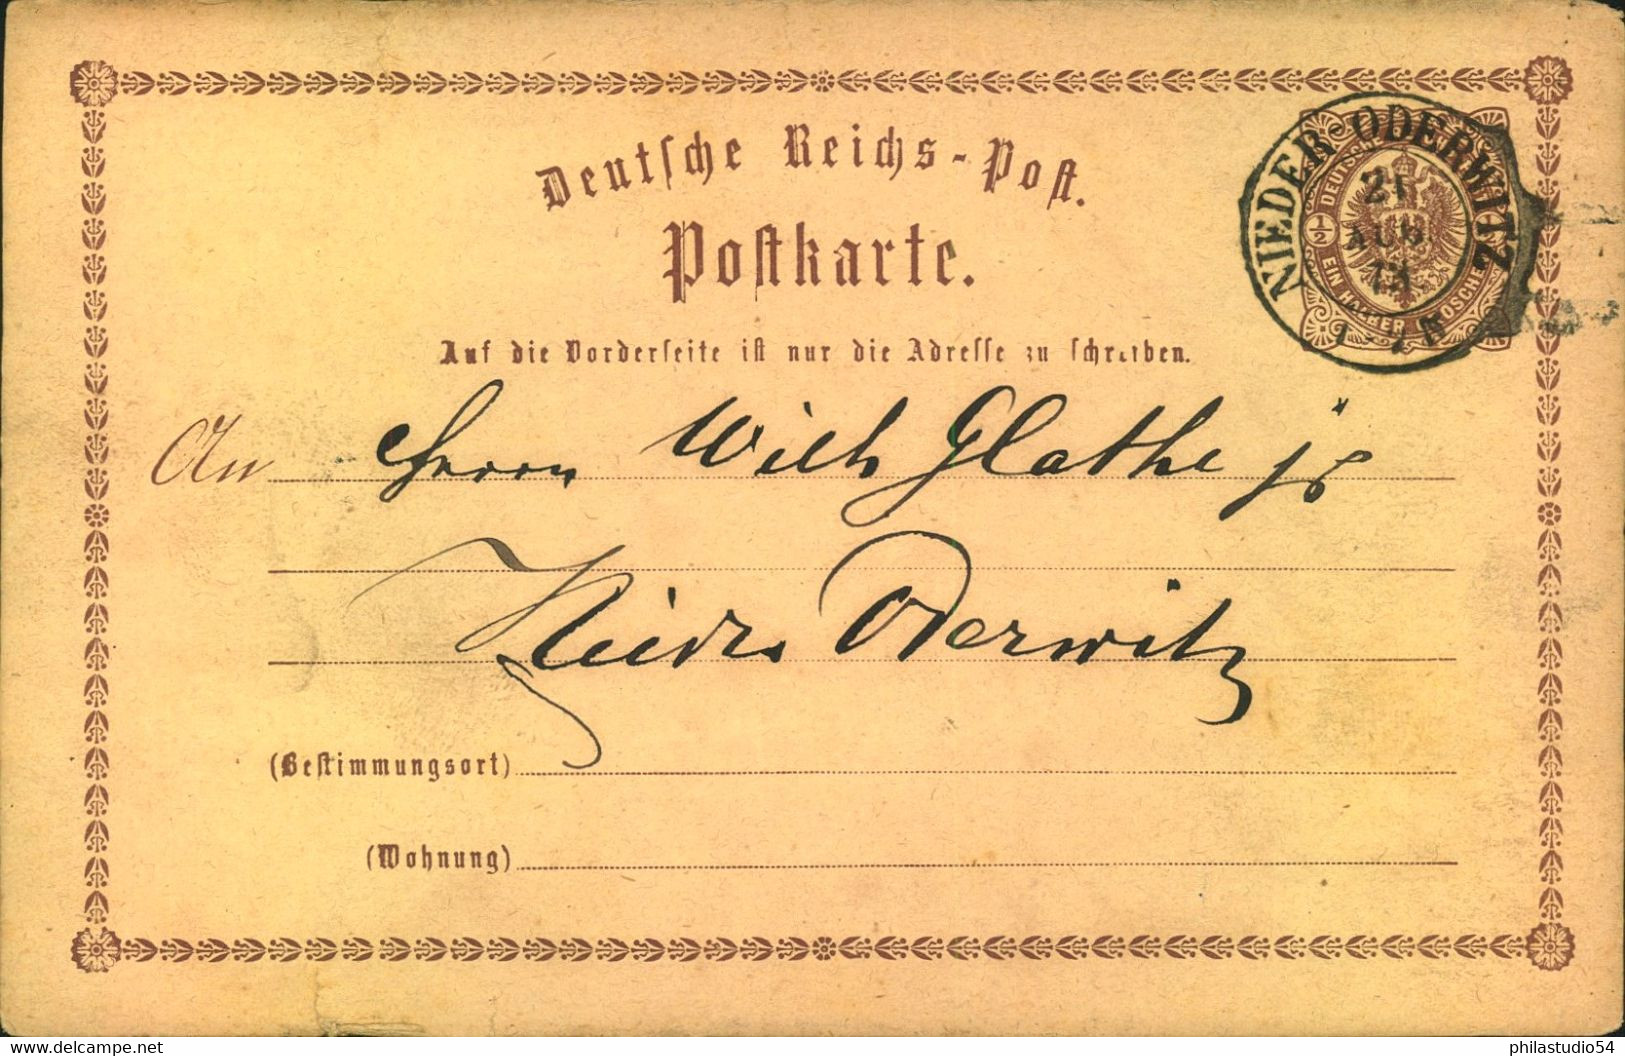 Deutsche Reichs-Post.
Postkarte.
NIEDER-ODERWITZ
21
AUG
73
DEUTSCHE
1/2
EIN HALBER GROSCHEN
Auf die Vorderseite ist nur die Adresse zu schreiben.
An Herrn Wilh Glathe jr
Nieder Oderwitz
(Bestimmungsort)
(Wohnung)
www.delcampe.net
philastudio54